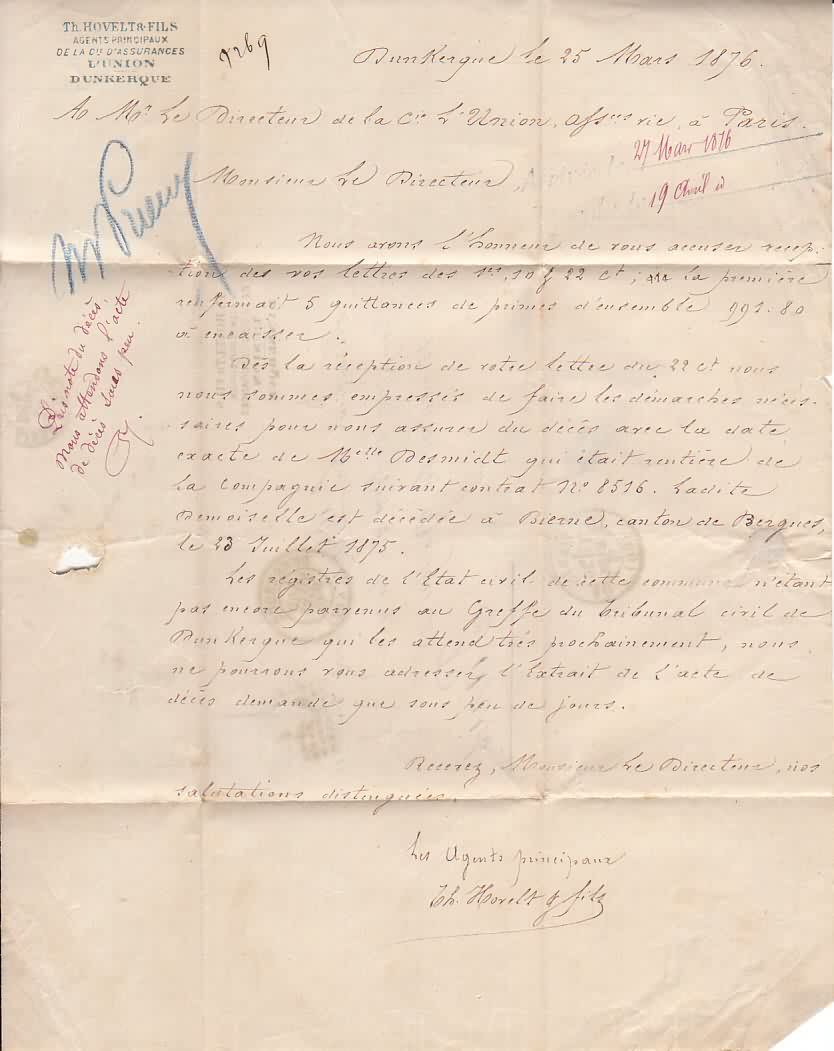 TH. HOVELT & FILS
AGENTS PRINCIPAUX
DE LA CIE D'ASSURANCES
L'UNION
DUNKERQUE
9269
Dunkerque le 25 Mars 1876.
A Mr. Le Directeur de la Cie L'Union, Assces vie, à Paris.
27 Mars 1876
19 Avril
Monsieur Le Directeur,
Nous avons l'honneur de vous accuser récep-
tion des vos lettres des 1er, 10 & 22 ct; la première
renfermait 5 quittances de primes d'ensemble 991.80
à encaisser.
Dès la réception de votre lettre du 22 ct nous
nous sommes empressés de faire les démarches néces-
saires pour nous assurer du décès avec la date
exacte de Melle Desmidt qui était rentière de
la Compagnie suivant contrat No 8516. Ladite
Demoiselle est décédée à Bierne, canton de Bergues,
le 23 Juillet 1875.
Les régistres de l'Etat civil de cette commune n'étant
pas encore parvenus au Greffe du Tribunal civil de
Dunkerque qui les attend très prochainement, nous
ne pourrons vous adresser l'Extrait de l'acte de
décès demande que sous peu de jours.
Recevez, Monsieur Le Directeur, nos
salutations distinguées.
Les Agents principaux
Th. Hovelt & fils
Pris note du décès,
Nous attendons l'acte
de décès sous peu.